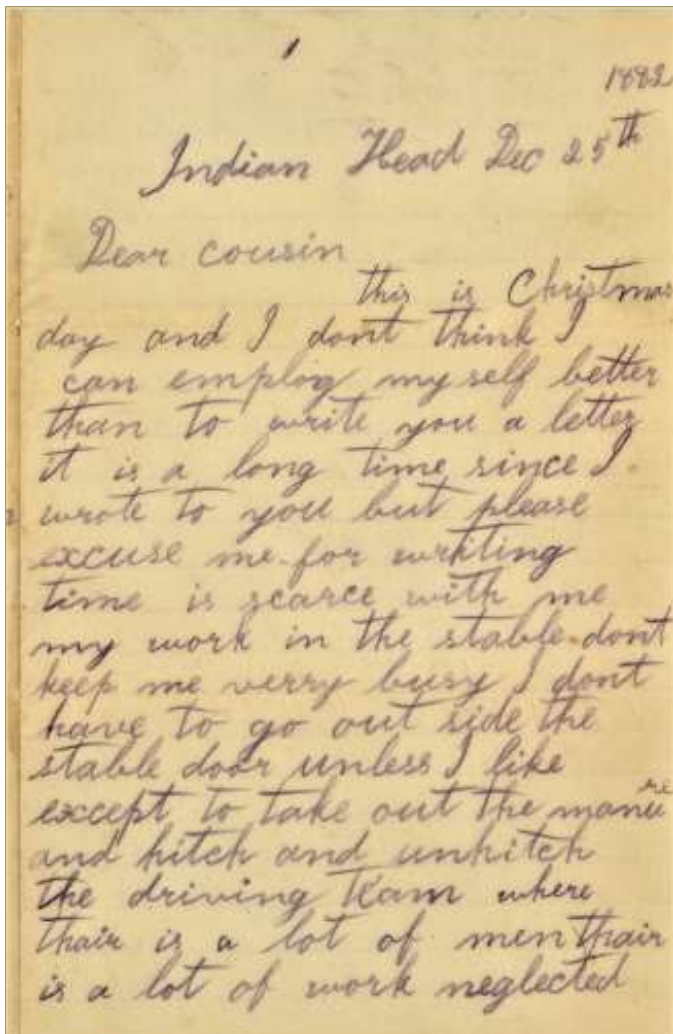 1
1882
Indian Head Dec 25th
Dear cousin
this is Christmas
day and I dont think I
can employ my self better
than to write you a letter
it is a long time since I
wrote to you but please
excuse me for writing
time is scarce with me
my work in the stable dont
keep me verry busy I dont
have to go out side the
stable door unless I like
except to take out the manure
and hitch and unhitch
the driving team where
thair is a lot of men thair
is a lot of work neglected